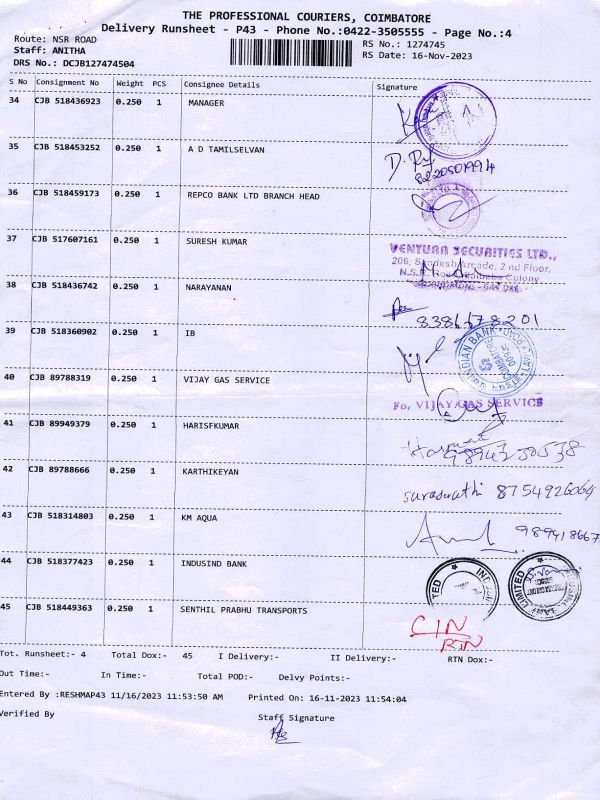 THE PROFESSIONAL COURIERS, COIMBATORE
Delivery Runsheet - P43 - Phone No.:0422-3505555 - Page No.:4
Route: NSR ROAD
RS No.: 1274745
Staff: ANITHA
RS Date: 16-Nov-2023
DRS No.: DCJB127474504
S No Consignment No Weight PCS Consignee Details Signature
34 CJB 518436923 0.250 1 MANAGER
35 CJB 518453252 0.250 1 A D TAMILSELVAN
8220501994
36 CJB 518459173 0.250 1 REPCO BANK LTD BRANCH HEAD
37 CJB 517607161 0.250 1 SURESH KUMAR
VENTURA SECURITIES LTD.,
206, Sandesh Arcade, 2nd Floor,
38 CJB 518436742 0.250 1 NARAYANAN
39 CJB 518360902 0.250 1 IB
INDIAN BANK
40 CJB 89788319 0.250 1 VIJAY GAS SERVICE
Fo, VIJAY GAS SERVICE
41 CJB 89949379 0.250 1 HARISFKUMAR
42 CJB 89788666 0.250 1 KARTHIKEYAN
saraswathi 8754926064
43 CJB 518314803 0.250 1 KM AQUA
989418667
44 CJB 518377423 0.250 1 INDUSIND BANK
LIMITED
45 CJB 518449363 0.250 1 SENTHIL PRABHU TRANSPORTS
CIN
RTN
Tot. Runsheet:- 4 Total Dox:- 45 I Delivery:- II Delivery:- RTN Dox:-
Out Time:- In Time:- Total POD:- Delvy Points:-
Entered By :RESHMAP43 11/16/2023 11:53:50 AM Printed On: 16-11-2023 11:54:04
Verified By Staff Signature